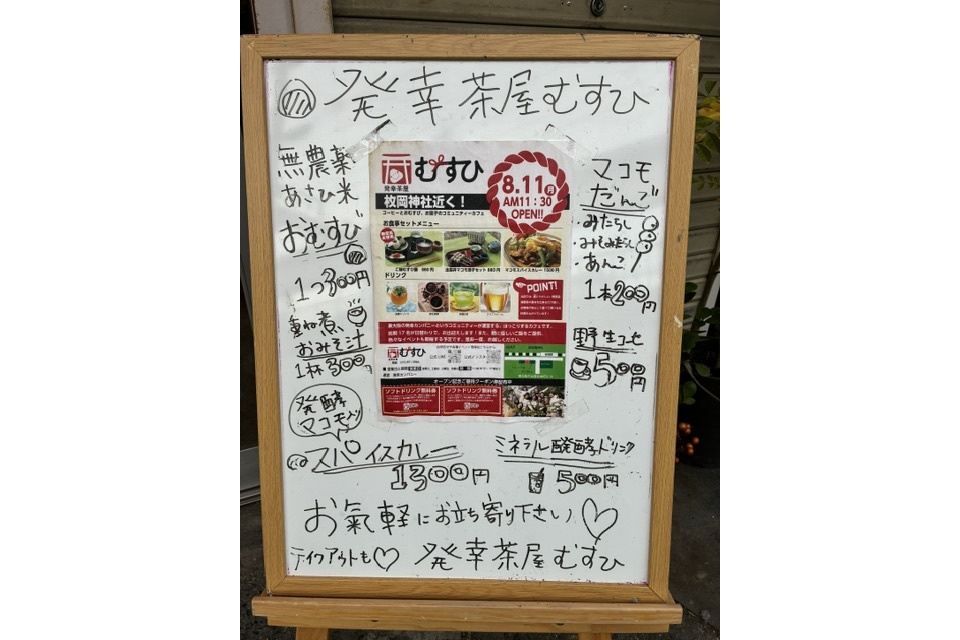 発幸茶屋むすひ
無農薬
あさひ米
おむすび
1つ300円
重ね煮
おみそ汁
1杯300円
発酵
マコモ入り
スパイスカレー
1300円
むすひ
発幸茶屋
枚岡神社近く!
コーヒーとおむすび、お団子のコミュニティーカフェ
8.11月
AM11:30
OPEN!!
お食事セットメニュー
マコモスパイスカレー 1500円
ドリンク
POINT!
むすひ
オープン記念ご優待クーポン券配布中
ソフトドリンク無料券
ソフトドリンク無料券
マコモ
だんご
・みたらし
・みそみたらし
・あんこ
1本200円
野生コーヒー
500円
ミネラル醗酵ドリンク
500円
お氣軽にお立ち寄り下さい♡
テイクアウトも♡
発幸茶屋むすひ